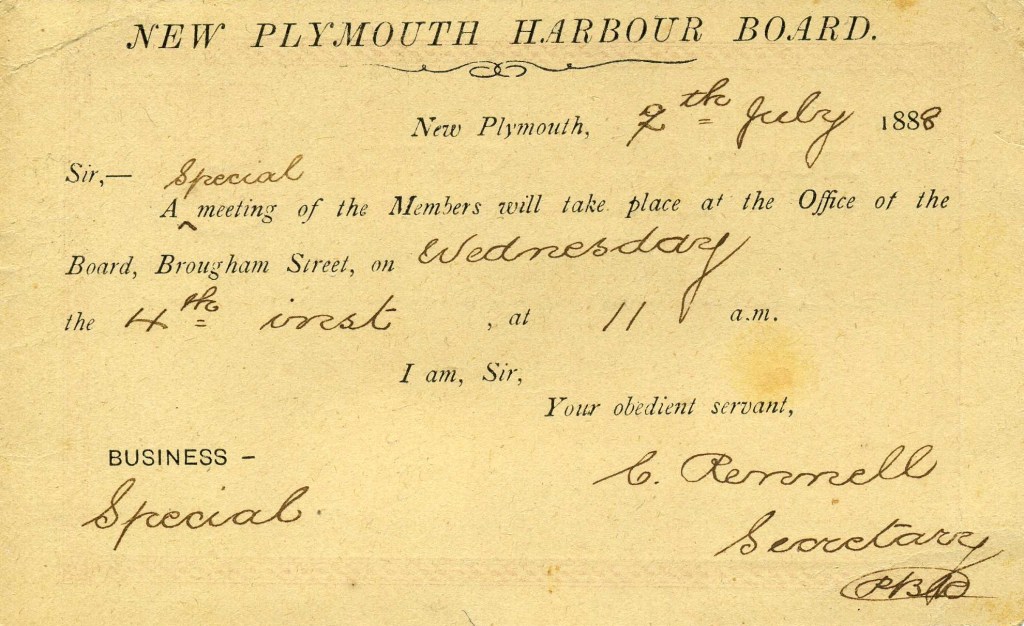 NEW PLYMOUTH HARBOUR BOARD.
New Plymouth, 2th July 1888
Sir,— Special
A ^ meeting of the Members will take place at the Office of the
Board, Brougham Street, on Wednesday
the 4th inst , at 11 a.m.
I am, Sir,
Your obedient servant,
BUSINESS –
C. Rennell
Special.
Secretary